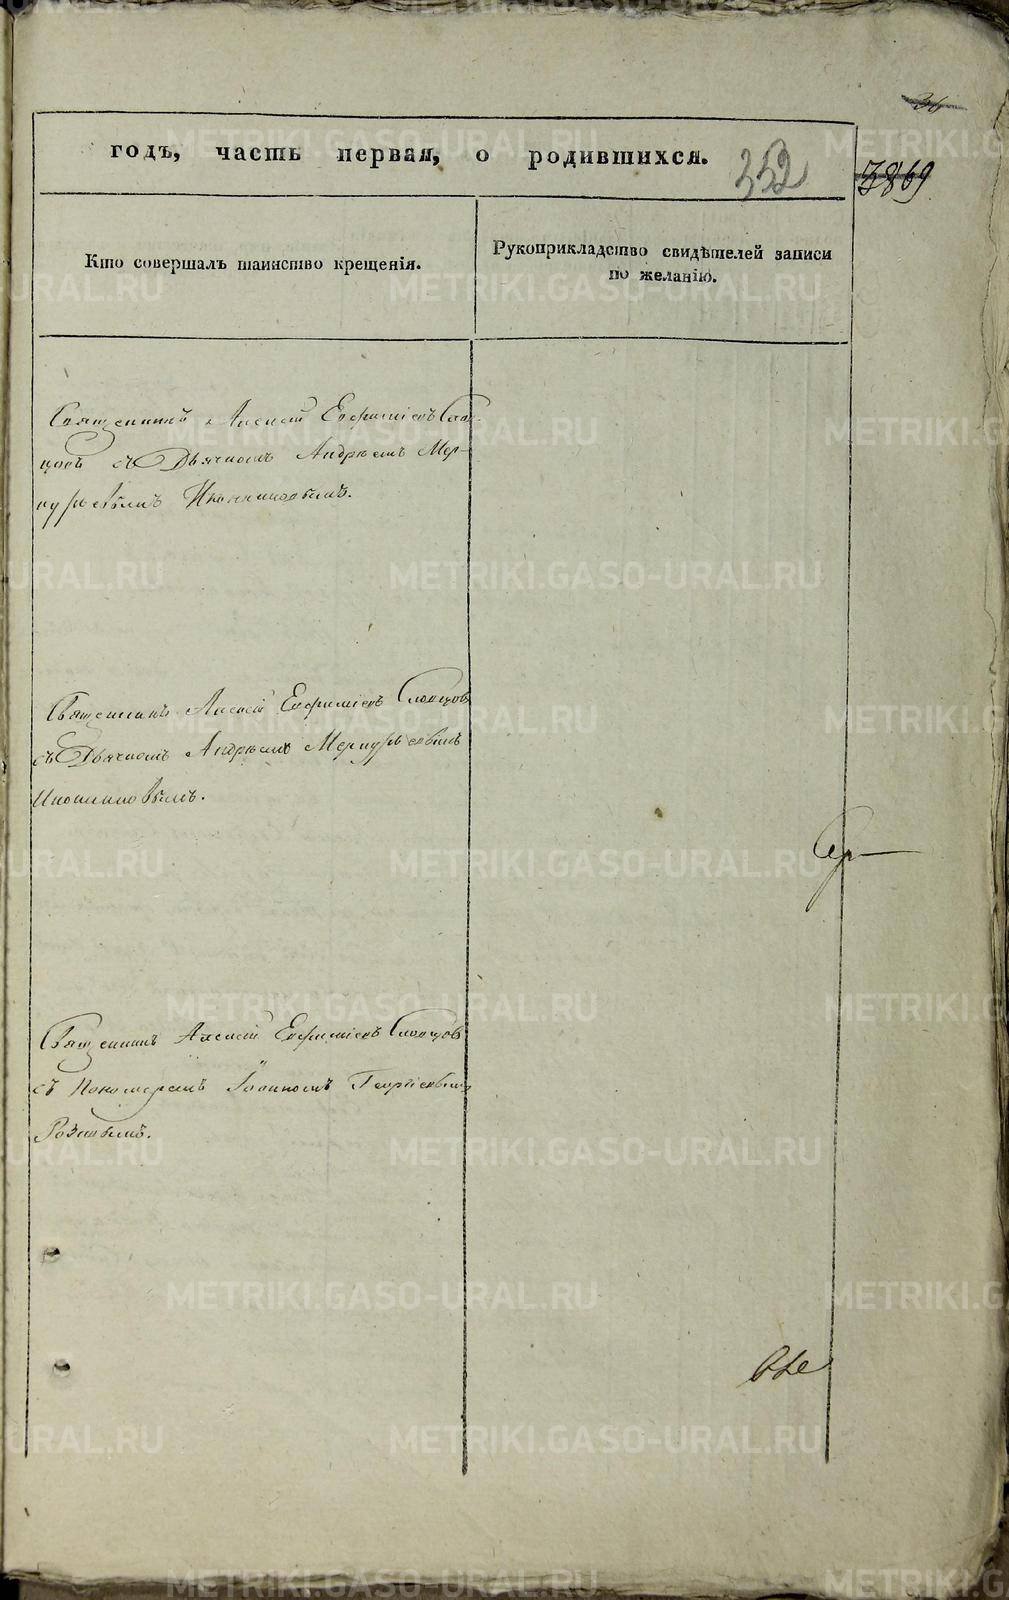 годъ, часть первая, о родившихся.
352
3869
Кто совершалъ таинство крещенія.
Рукоприкладство свидѣтелей записи
по желанію.
Священникъ Алексѣй Евфиміевъ Слов-
цовъ съ Дьячкомъ Андреемъ Мер-
курьевымъ Иконниковымъ.
Священникъ Алексѣй Евфиміевъ Словцовъ
съ Дьячкомъ Андреемъ Меркурьевымъ
Иконниковымъ.
Священникъ Алексѣй Евфиміевъ Словцовъ
съ Пономаремъ Іоанномъ Георгіевымъ
Розовымъ.
METRIKI.GASO-URAL.RU